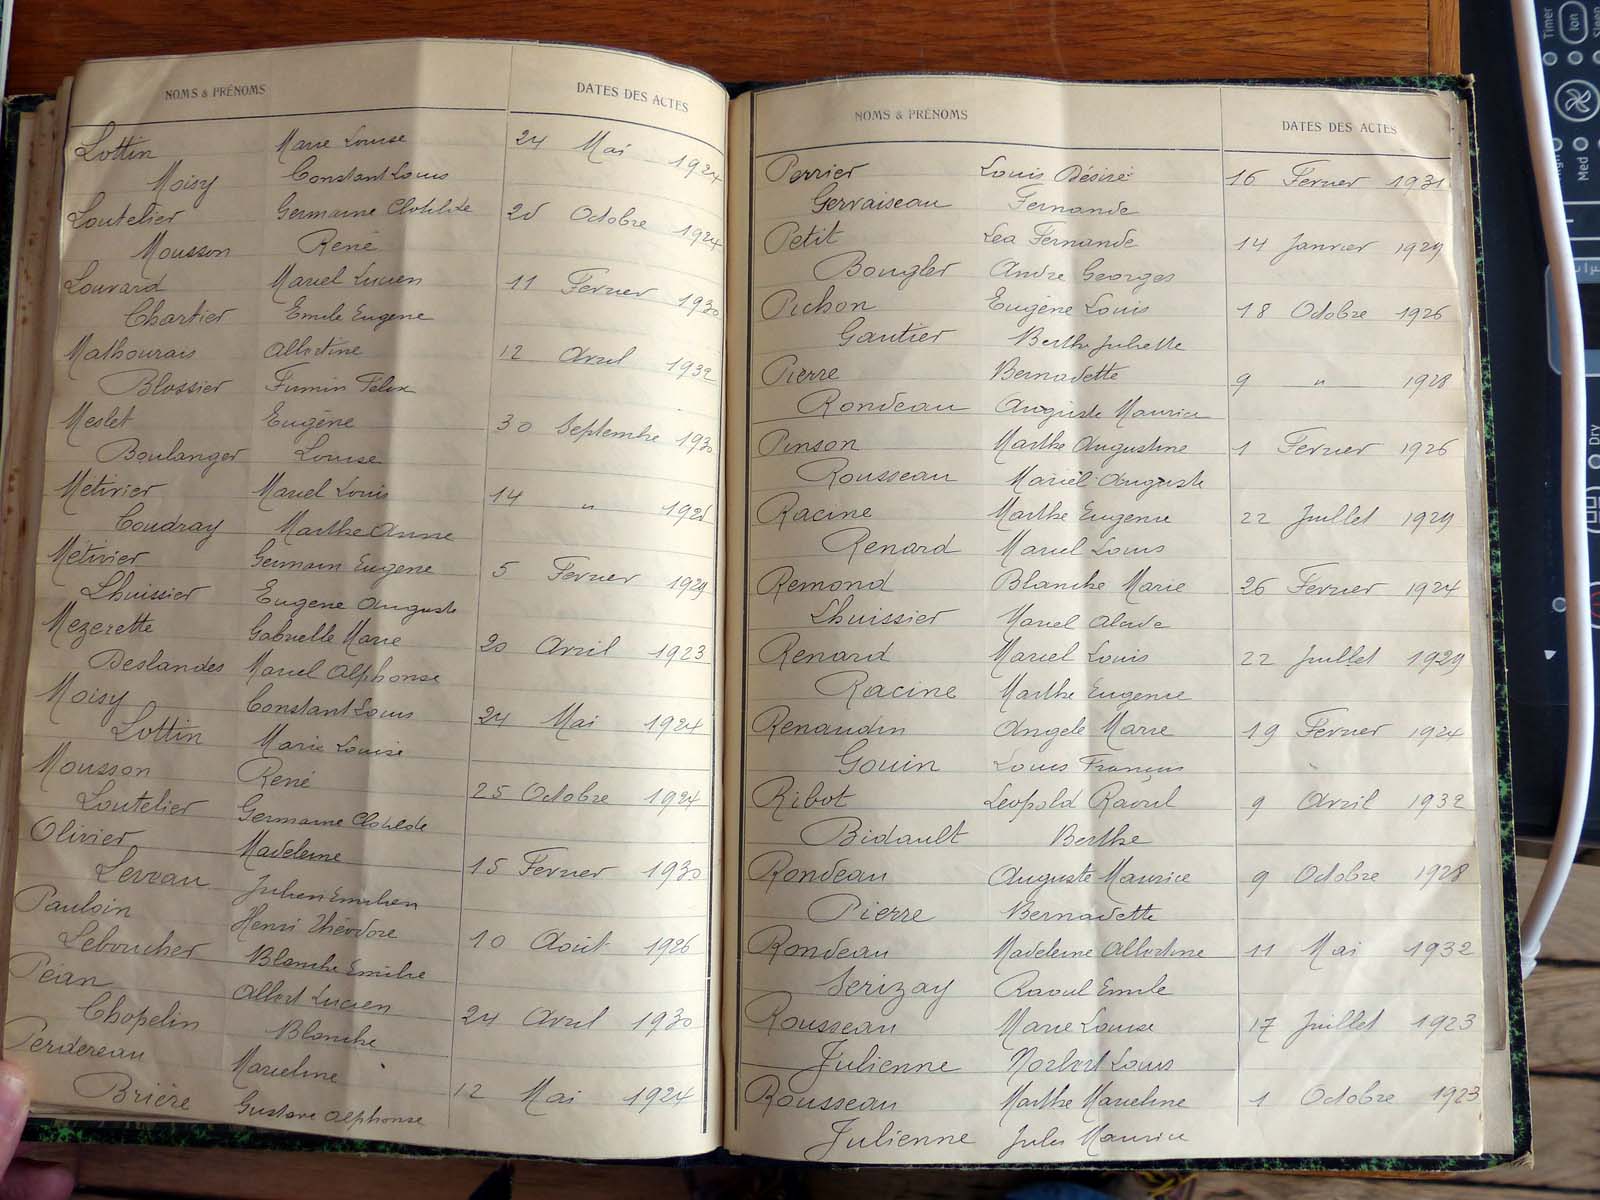 NOMS & PRÉNOMS DATES DES ACTES
Lottin Marie Louise 24 Mai 1924
Moisy Constant Louis
Loutelier Germaine Clotilde 25 Octobre 1924
Mousson René
Louvard Marcel Lucien 11 Fevrier 1930
Chartier Emile Eugene
Mathourais Albertine 12 Avril 1932
Blossier Firmin Félix
Meslet Eugène 30 Septembre 1930
Boulanger Louise
Métivier Marcel Louis 14 " 1925
Coudray Marthe Anne
Métivier Germain Eugene 5 Fevrier 1929
Lhuissier Eugene Auguste
Mezerette Gabrielle Marie 20 Avril 1923
Deslandes Marcel Alphonse
Moisy Constant Louis 24 Mai 1924
Lottin Marie Louise
Mousson René 25 Octobre 1924
Loutelier Germaine Clotilde
Olivier Madeleine 15 Fevrier 1930
Levrau Julien Emilien
Pauloin Henri Théodore 10 Août 1926
Leboucher Blanche Emilie
Péan Albert Lucien 24 Avril 1930
Chopelin Blanche
Perdereau Marceline 12 Mai 1924
Brière Gustave Alphonse
NOMS & PRÉNOMS DATES DES ACTES
Perrier Louis Désiré 16 Fevrier 1931
Gervaiseau Fernande
Petit Lea Fernande 14 Janvier 1929
Bougler Andre Georges
Pichon Eugène Louis 18 Octobre 1926
Gautier Berthe Juliette
Pierre Bernadette 9 " 1928
Rondeau Auguste Maurice
Pinson Marthe Augustine 1 Fevrier 1926
Rousseau Marcel Auguste
Racine Marthe Eugenie 22 Juillet 1929
Renard Marcel Louis
Remond Blanche Marie 26 Fevrier 1924
Lhuissier Marcel
Renard Marcel Louis 22 Juillet 1929
Racine Marthe Eugenie
Renaudin Angele Marie 19 Fevrier 1924
Gouin Louis François
Ribot Leopold Raoul 9 Avril 1932
Bidault Berthe
Rondeau Auguste Maurice 9 Octobre 1928
Pierre Bernadette
Rondeau Madeleine Albertine 11 Mai 1932
Serizay Raoul Emile
Rousseau Marie Louise 17 Juillet 1923
Julienne Norbert Louis
Rousseau Marthe Marceline 1 Octobre 1923
Julienne Jules Maurice
Timer
Ion
Med
Dry